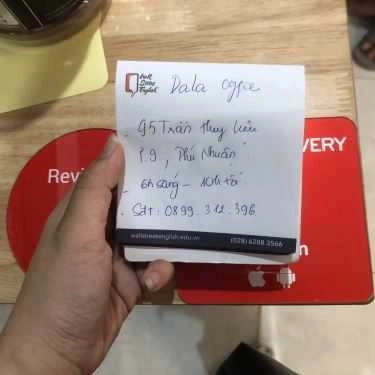 Wall
Street
English
Dala coffee
- 95 Trần Huy Liệu
P.9, Phú Nhuận
- 6h sáng - 10h tối
- Sđt: 0899.312.396
wallstreetenglish.edu.vn
(028) 6288 3566
Revi
VERY